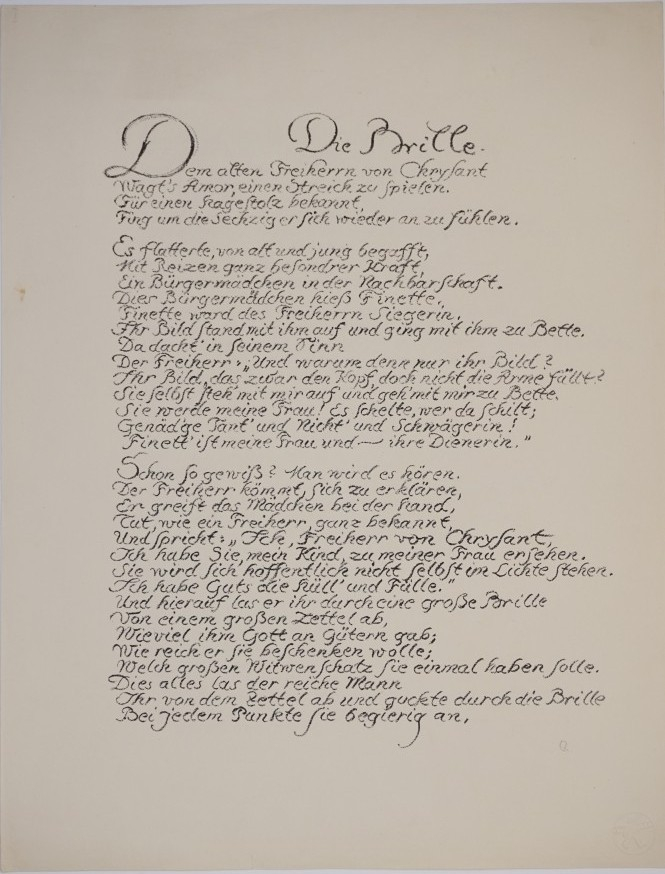 Die Brille.
Dem alten Freiherrn von Chrysant
Wagt's Amor, einen Streich zu spielen.
Für einen Hagestolz bekannt,
Fing um die Sechzig er sich wieder an zu fühlen.
Es flatterte, von alt und jung begafft,
Mit Reizen ganz besondrer Kraft,
Ein Bürgermädchen in der Nachbarschaft.
Dies Bürgermädchen hieß Finette,
Finette ward des Freiherrn Siegerin,
Ihr Bild stand mit ihm auf und ging mit ihm zu Bette.
Da dacht' in seinem Sinn
Der Freiherr: „Und warum denn nur ihr Bild?
Ihr Bild, das zwar den Kopf, doch nicht die Arme füllt?
Sie selbst steh' mit mir auf und geh' mit mir zu Bette.
Sie werde meine Frau! Es schelte, wer da schilt;
Genäd'ge Tant' und Nicht' und Schwägerin!
Finett' ist meine Frau und — ihre Dienerin."
Schon so gewiß? Man wird es hören.
Der Freiherr kömmt, sich zu erklären,
Er greift das Mädchen bei der Hand,
Tut, wie ein Freiherr, ganz bekannt,
Und spricht: „Ich, Freiherr von Chrysant,
Ich habe Sie, mein Kind, zu meiner Frau ersehen.
Sie wird sich hoffentlich nicht selbst im Lichte stehen.
Ich habe Guts die Hüll' und Fülle."
Und hierauf las er ihr durch eine große Brille
Von einem großen Zettel ab,
Wieviel ihm Gott an Gütern gab;
Wie reich er sie beschenken wolle;
Welch großen Witwenschatz sie einmal haben solle.
Dies alles las der reiche Mann
Ihr von dem Zettel ab und guckte durch die Brille
Bei jedem Punkte sie begierig an,